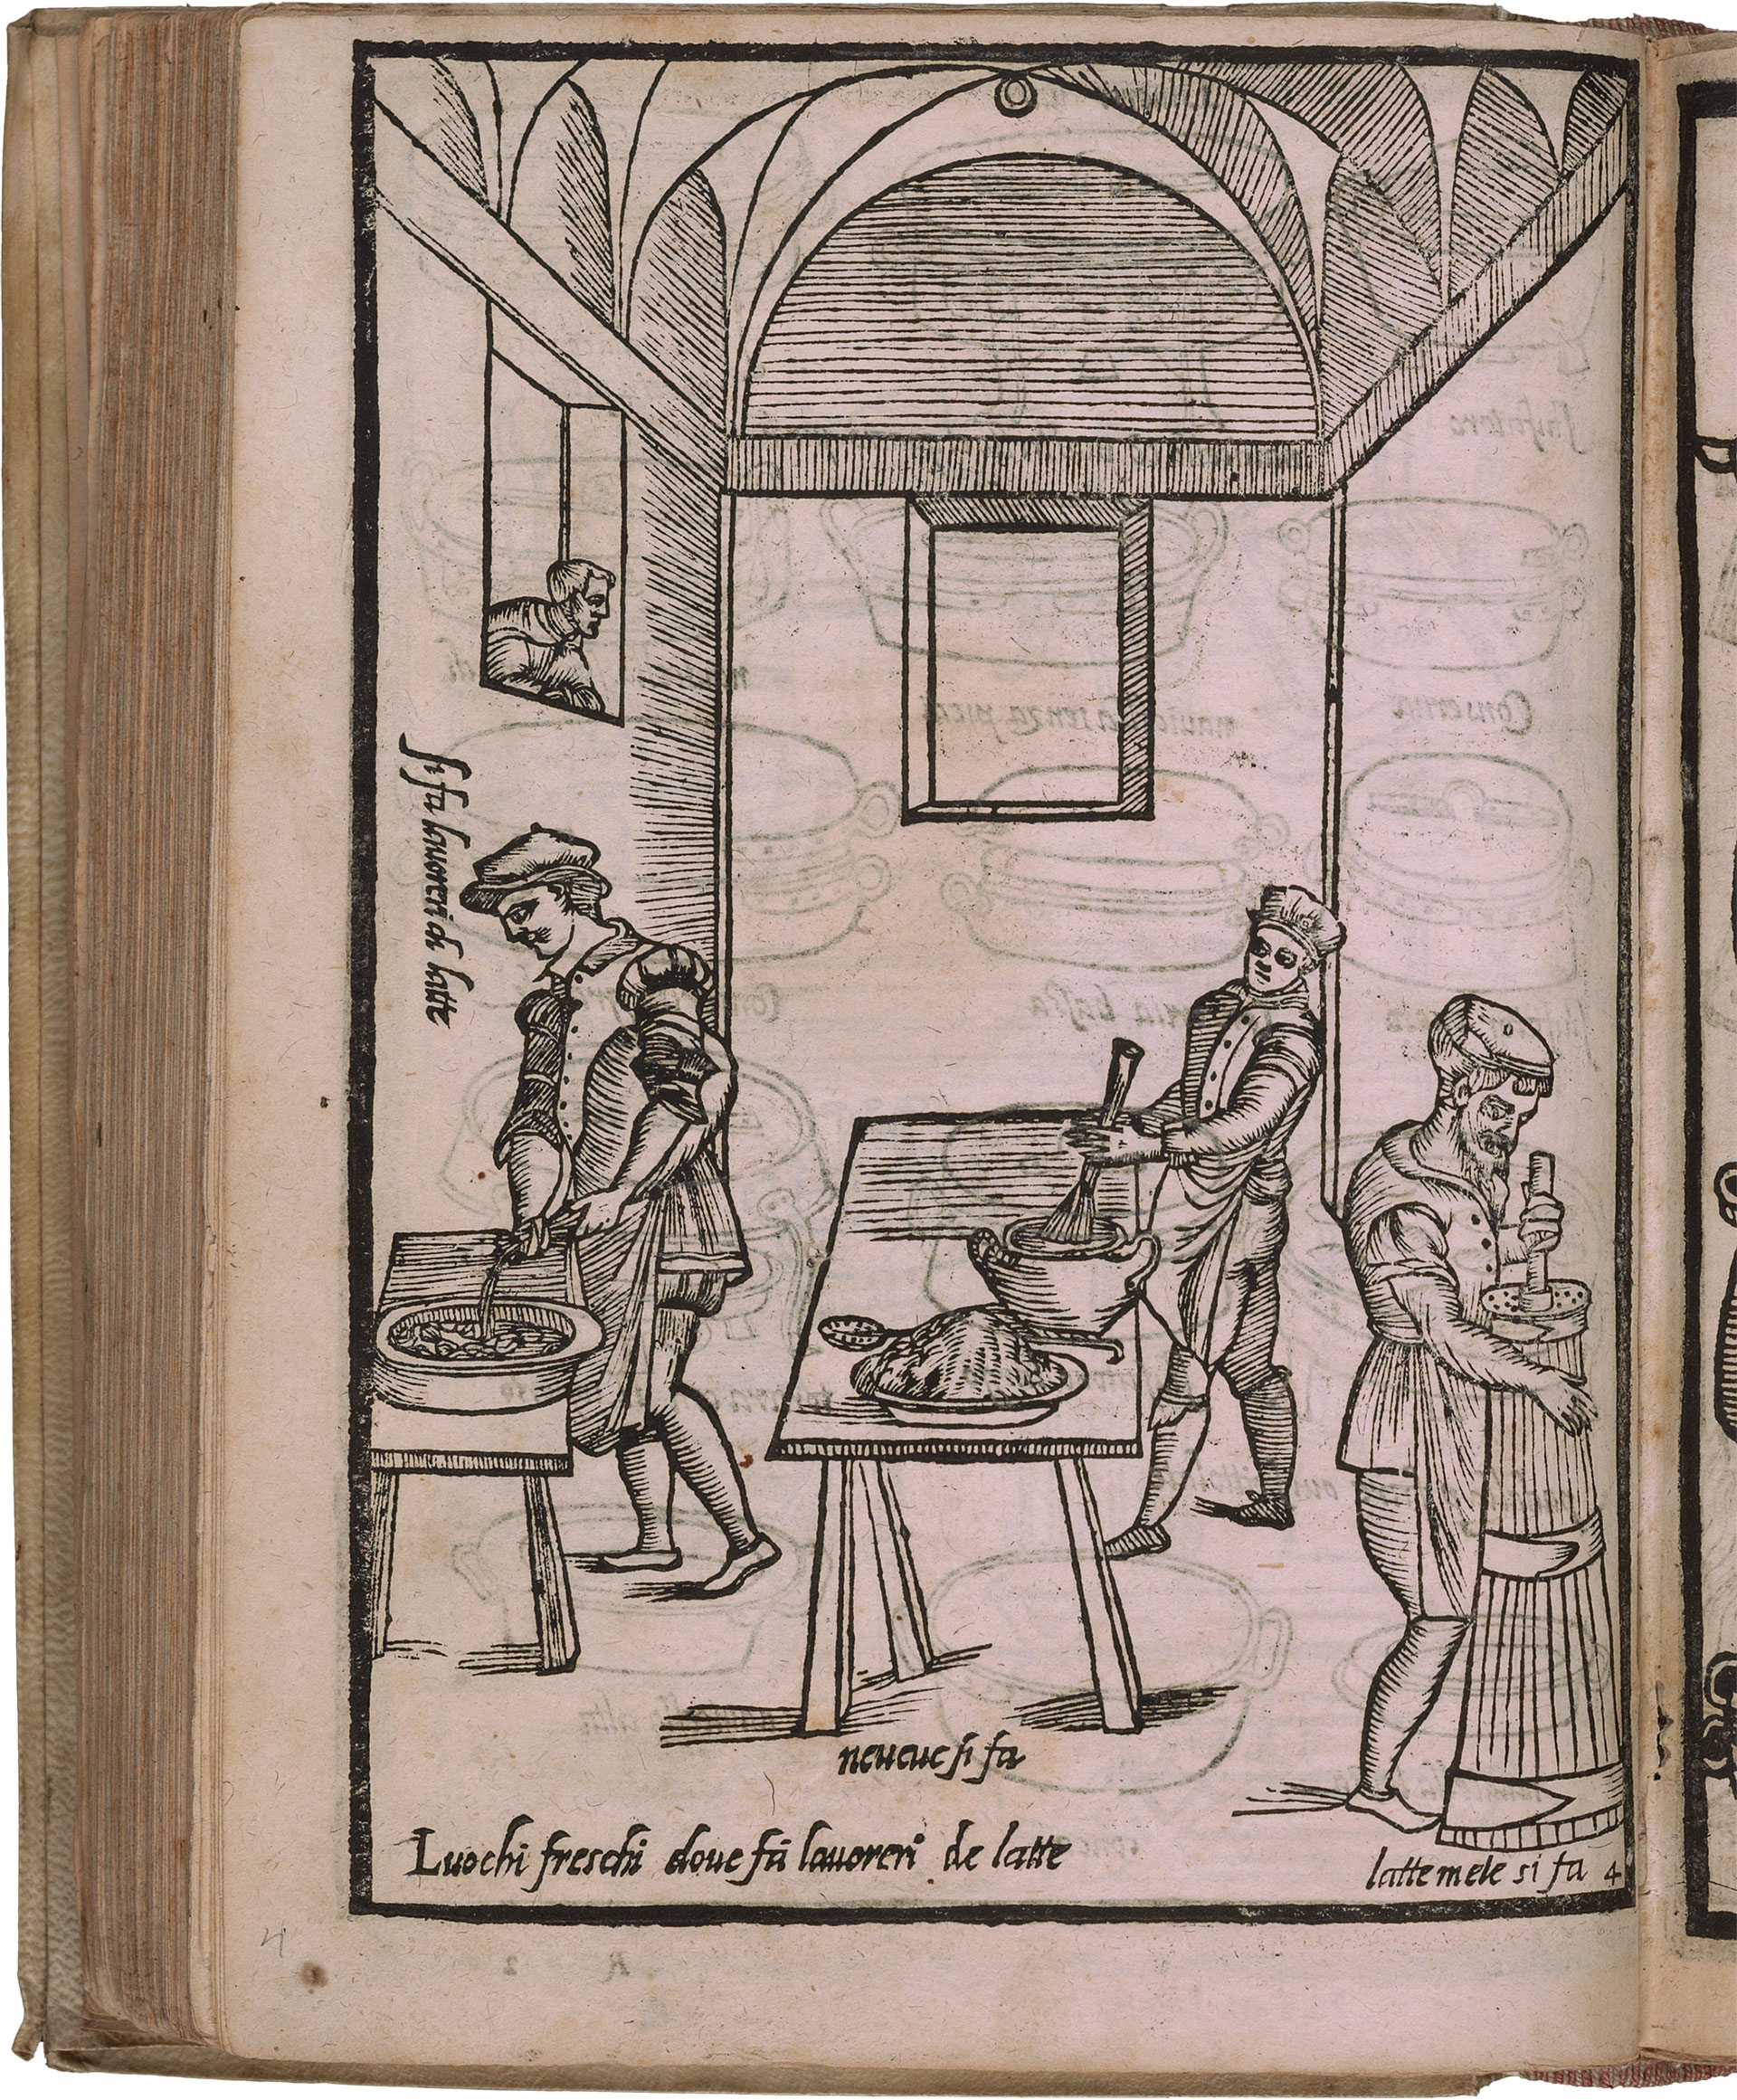 si fa lauoreri di latte
neueue si fa
Luochi freschi doue fā lauoreri de latte
latte mele si fa 4
4